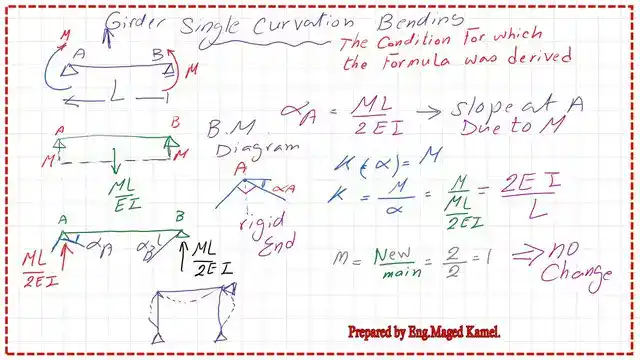 Girder Single Curvation Bending
The Condition For which
the Formula was derived
M
A
B
M
L
B.M.
Diagram
αA = ML/2EI → slope at A
Due to M
A
B
M
M
ML/EI
A
αA
rigid
End
K(α) = M
K = M/α = M/(ML/2EI) = 2EI/L
A
B
αA
ML/2EI
ML/2EI
m = New/main = 2/2 = 1 ⇒ no
Change
Prepared by Eng.Maged Kamel.